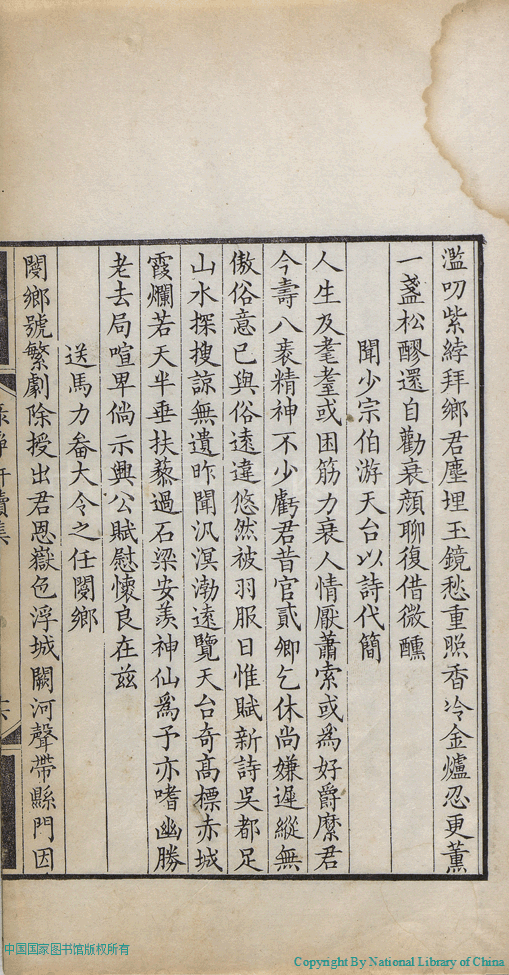 濫叨紫綍拜鄉君塵埋玉鏡愁重照香冷金爐忍更薰
一盞松醪還自勸衰顏聊復借微醺
聞少宗伯游天台以詩代簡
人生及耄耋或困筋力衰人情厭蕭索或為好爵縻君
今壽八袠精神不少虧君昔官貳卿乞休尚嫌遲縱無
傲俗意已與俗遠違悠然被羽服日惟賦新詩吳都足
山水探搜諒無遺昨聞汎溟渤遠覽天台奇高標赤城
霞爛若天半垂扶藜過石梁安羨神仙為予亦嗜幽勝
老去局喧卑倘示興公賦慰懷良在茲
送馬力畚大令之任閿鄉
閿鄉號繁劇除授出君恩嶽色浮城闕河聲帶縣門因
續集
中国国家图书馆版权所有
Copyright By National Library of China